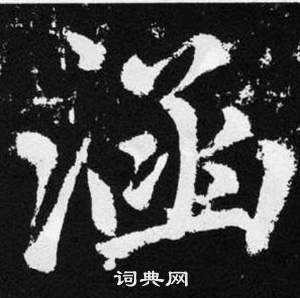 涵
词典网